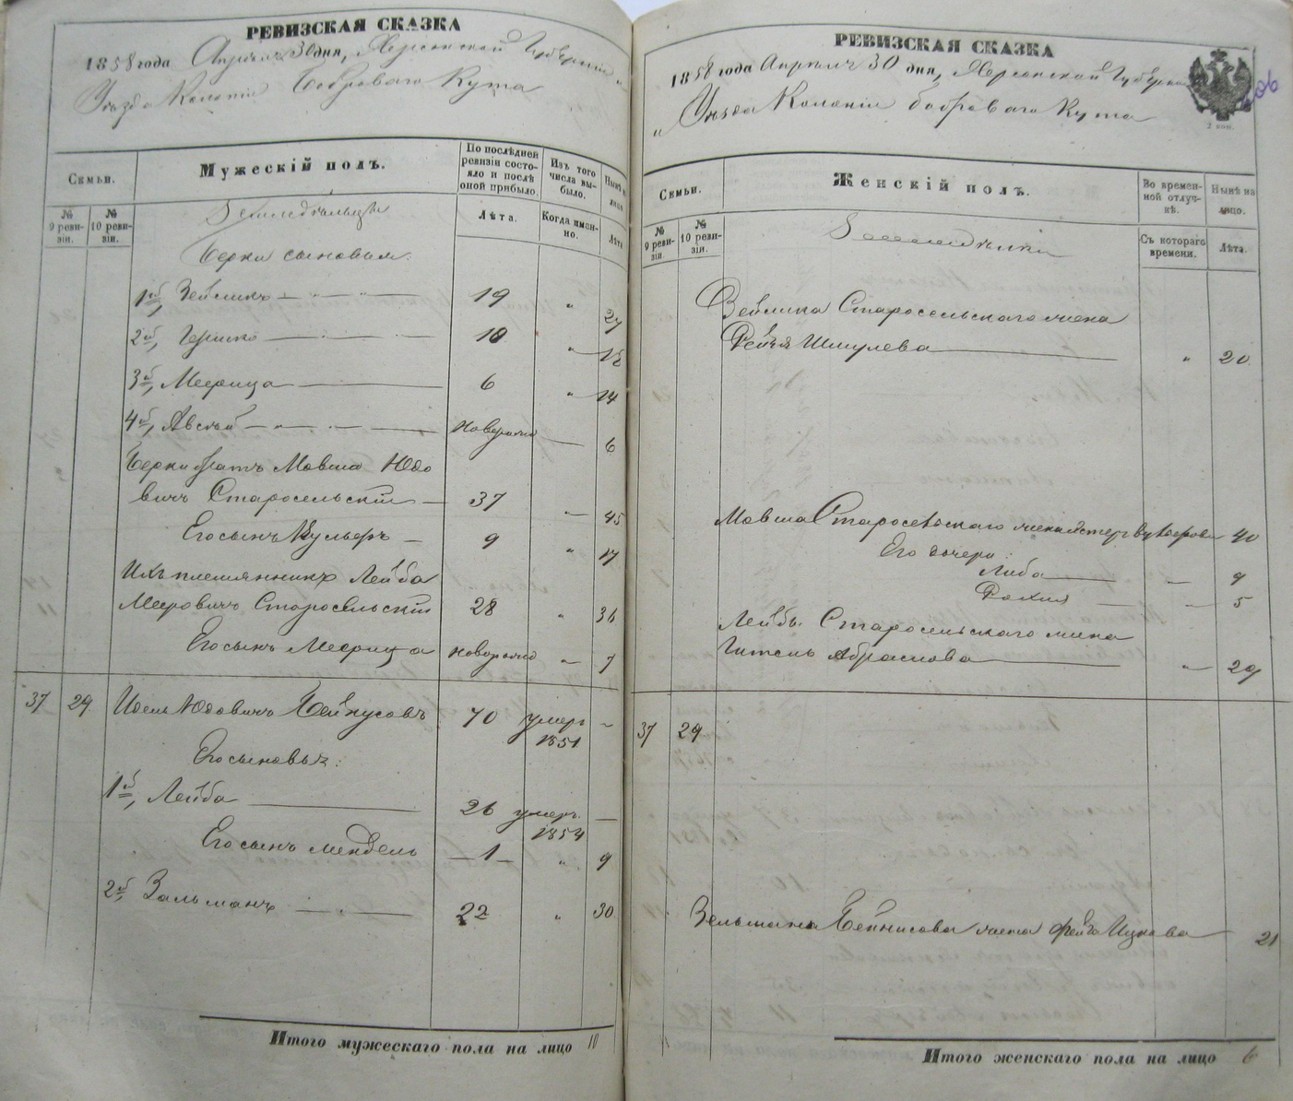 РЕВИЗСКАЯ СКАЗКА
1858 года Апреля 30 дня, Херсонской Губернии и
Уезда Колонии Боброваго Кута
Семьи.
Мужескій полъ.
По послѣдней ревизіи состояло и послѣ оной прибыло.
Изъ того числа выбыло.
Нынѣ на лицо.
№ 9 ревизіи.
№ 10 ревизіи.
Лѣта.
Когда именно.
Лѣта
Земледѣльцы
Берки сыновья:
1й, Зейликъ 19 " 27
2й, Гершко 10 " 18
3й, Меерица 6 " 14
4й, Авсѣй новорожд 6
Берки братъ Мовша Юдо
вичъ Старосельскій 37 45
Его сынъ 9 " 17
Ихъ племянникъ Лейба
Мееровичъ Старосельскій 28 " 36
Его сынъ Меерица новорожд " 7
37 29 Идель Юдовичъ Бейнусовъ 70 умеръ 1851 –
Его сыновья:
1й, Лейба 26 умеръ 1854 —
Его сынъ Мендель 1 " 9
2й, Зальманъ 22 " 30
Итого мужескаго пола на лицо 10
РЕВИЗСКАЯ СКАЗКА
1858 года Апреля 30 дня, Херсонской Губерніи
и Уезда Колоніи Боброваго Кута
2 коп.
406
Семьи.
Женскій полъ.
Во временной отлучкѣ.
Нынѣ на лицо.
№ 9 ревизіи.
№ 10 ревизіи.
Съ котораго времени.
Лѣта.
Зейлика Старосельскаго жена
Фейга Шмулева " 20
Мовша Старосельскаго жена 40
Его дочери:
Либа 9
Рахиля 5
Лейбы Старосельскаго жена
Гитель Абрамова " 29
37 29
Зельмана Бейнусова жена Фейга Ицкова 21
Итого женскаго пола на лицо 6